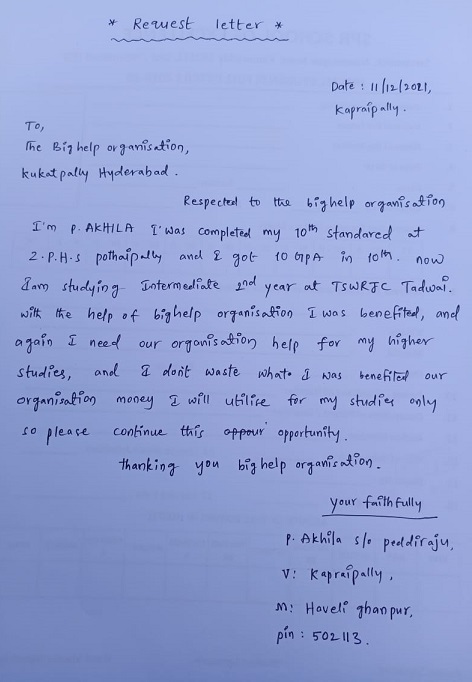 * Request letter *
Date : 11/12/2021,
Kapraipally.
To,
The Big help organisation,
kukatpally Hyderabad.
Respected to the big help organisation
I'm P. AKHILA I was completed my 10th standared at
Z.P.H.S pothaipally and I got 10 GPA in 10th. now
Iam studying Intermediate 2nd year at TSWRJC Tadwai.
with the help of bighelp organisation I was benefited, and
again I need our organisation help for my higher
studies, and I don't waste what I was benefited our
organisation money I will utilise for my studies only
so please continue this oppour opportunity.
thanking you big help organisation.
your faithfully
P. Akhila s/o peddiraju,
V: Kapraipally,
M: Haveli ghanpur,
pin : 502113.